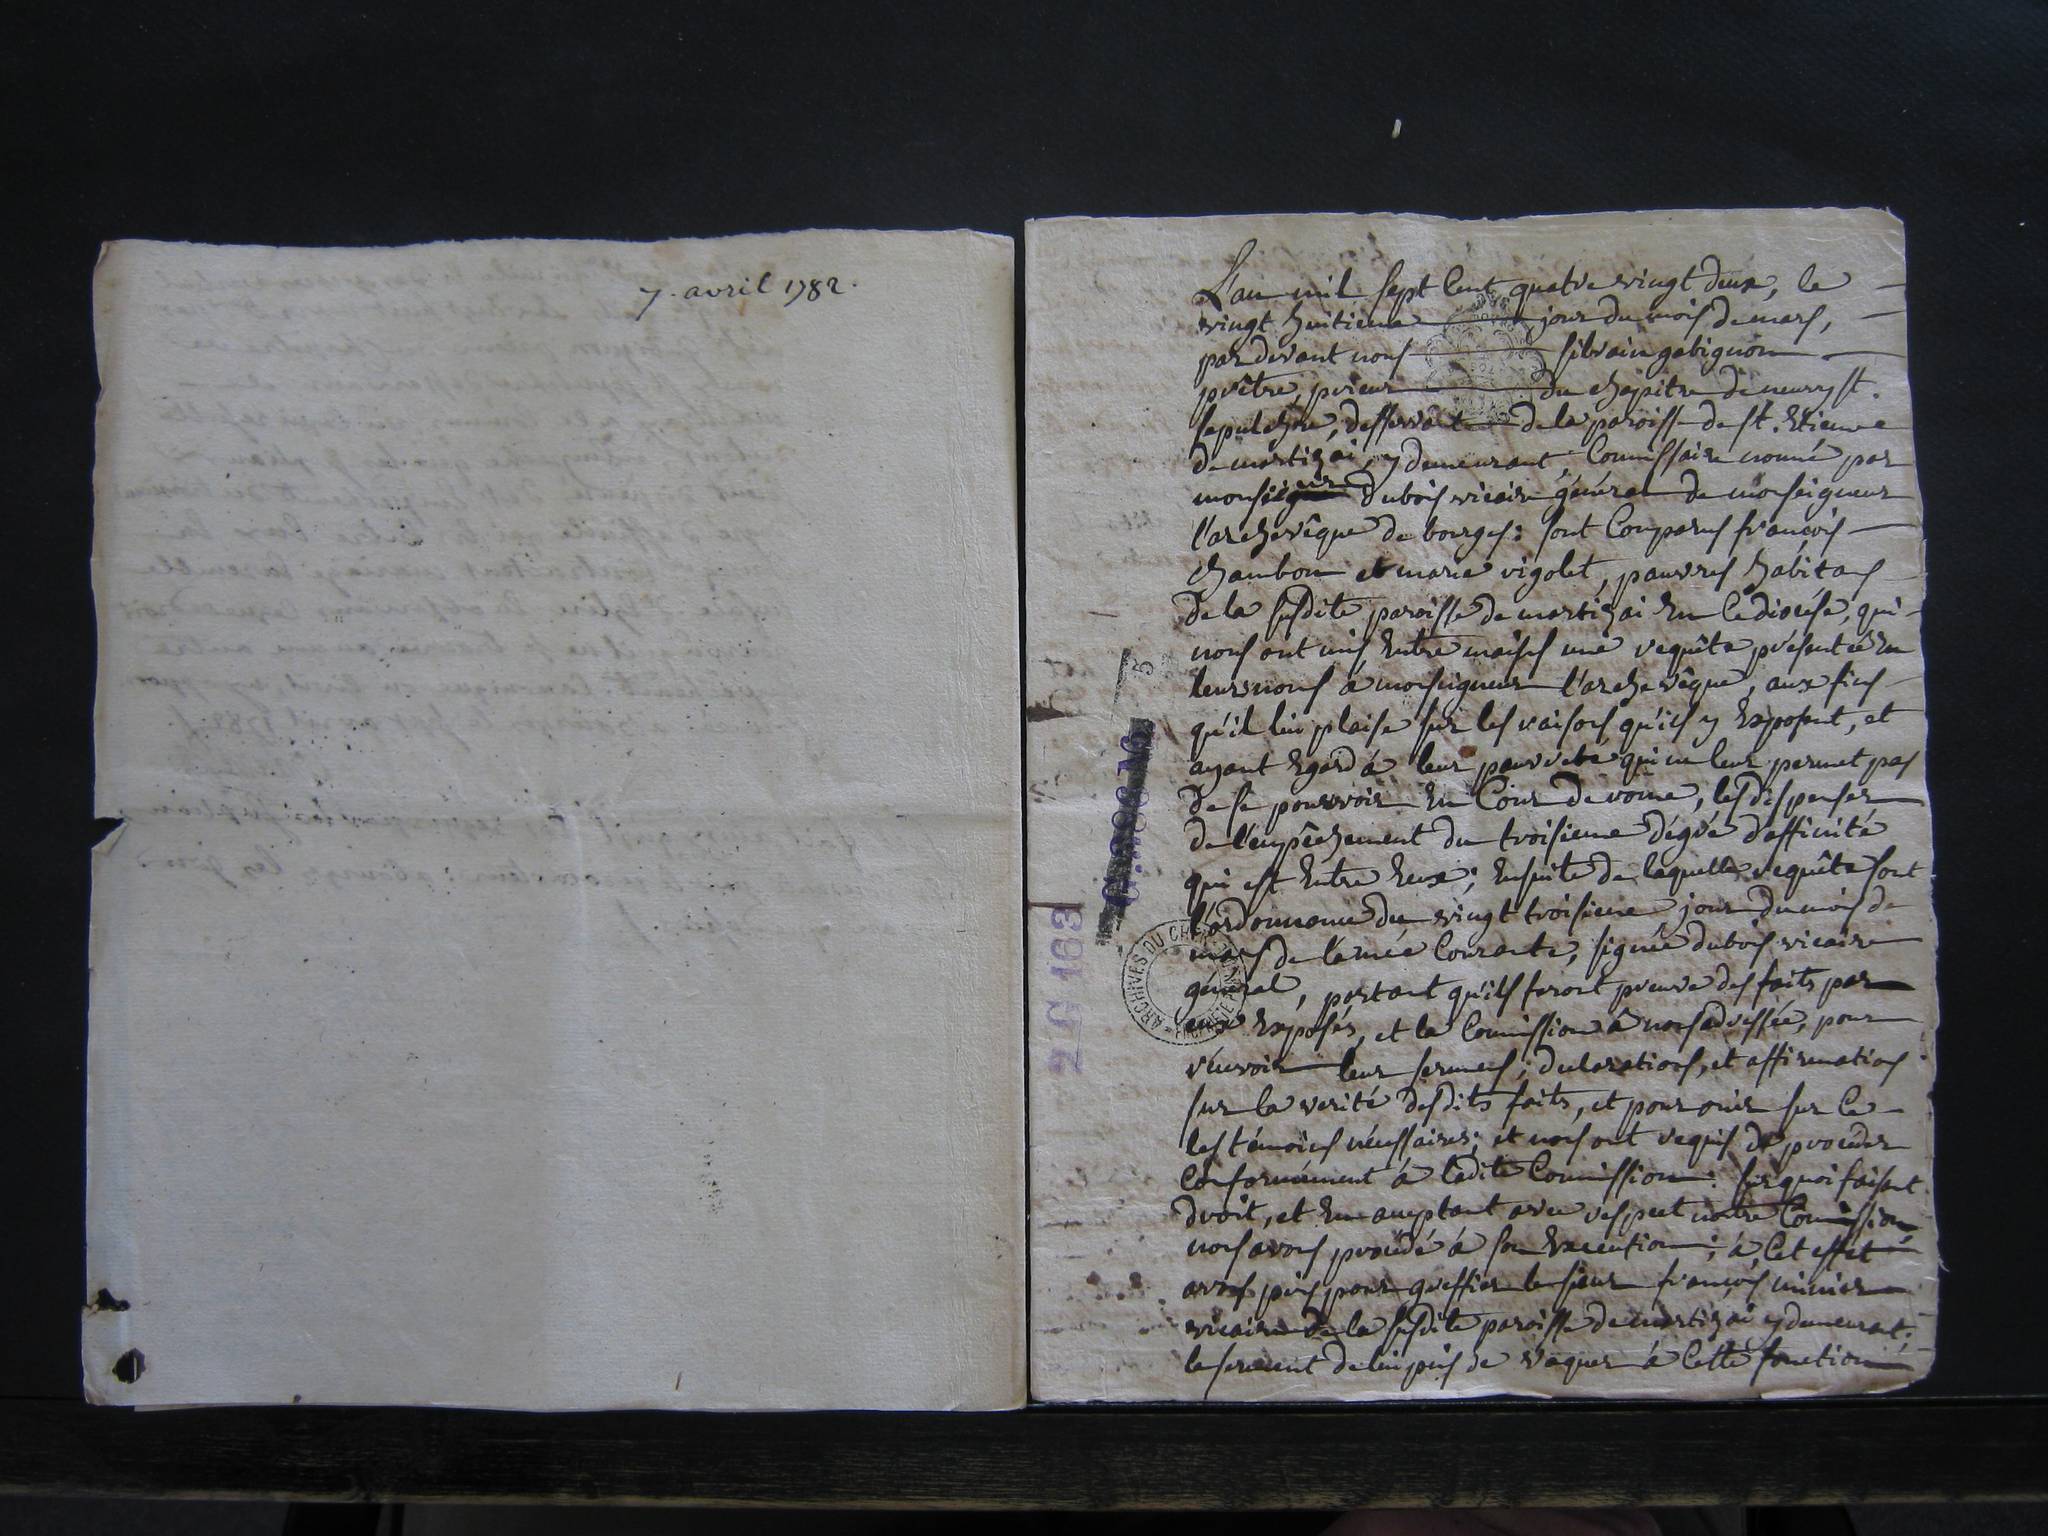 7. avril 1782.
L'an mil sept Cent quatre vingt deux, le
vingt huitieme jour du mois de mars,
par devant nous silvain gabignon
prêtre, prieur du chapitre de neuvy st.
sepulchre, desservant de la paroisse de st. Etienne
de martizai, y demeurant, Commissaire nommé par
monsieur dubois vicaire général de monseigneur
l'archevêque de bourges: sont Comparus françois
chambon et marie vigolet, pauvres habitans
de la susdite paroisse de martizai En Ce diocése, qui
nous ont mis Entre mains une requête présentée En
leurs noms à monseigneur l'archevêque, aux fins
qu'il lui plaise sur les raisons qu'ils y Exposent, et
ayant Egard à leur pauvreté qui ne leur permet pas
de se pourvoir En Cour de rome, les dispenser
de l'empêchement du troisieme dégré d'affinité
qui est Entre Eux; Ensuite de laquelle requête sont
l'ordonnance du vingt troisieme jour du mois de
mars de l'année Courante, signée dubois vicaire
général, portant qu'ils feront preuve des faits par
eux Exposés, et la Commission à nous adressée, pour
recevoir leur sermens, declarations, et affirmations
sur la verité desdits faits, et pour ouir sur Ce
les témoins nécessaires; et nous ont requis de proceder
Conformément à ladite Commission: sur quoi faisant
droit, et En acceptant avec respect notre Commission,
nous avons procédé à son Execution; à Cet effet
avons pris pour greffier le sieur françois
vicaire de la susdite paroisse de martizai y demeurant;
le serment de lui pris de vaquer à Cette fonction
2 G 163
ARCHIVES DU CHER